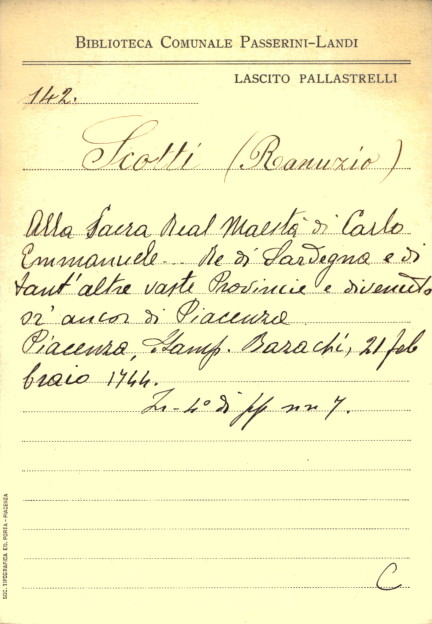 BIBLIOTECA COMUNALE PASSERINI-LANDI
LASCITO PALLASTRELLI
142.
Scotti (Ranuzio)
Alla Sacra Real Maestà di Carlo
Emmanuele... Re di Sardegna e di
tant'altre vaste Provincie e divenuto
sì ancor di Piacenza
Piacenza, Stamp. Barachi, 21 feb
braio 1744.
In-4° di pp nn 7.
C
SOC. TIPOGRAFICA ED. PORTA - PIACENZA